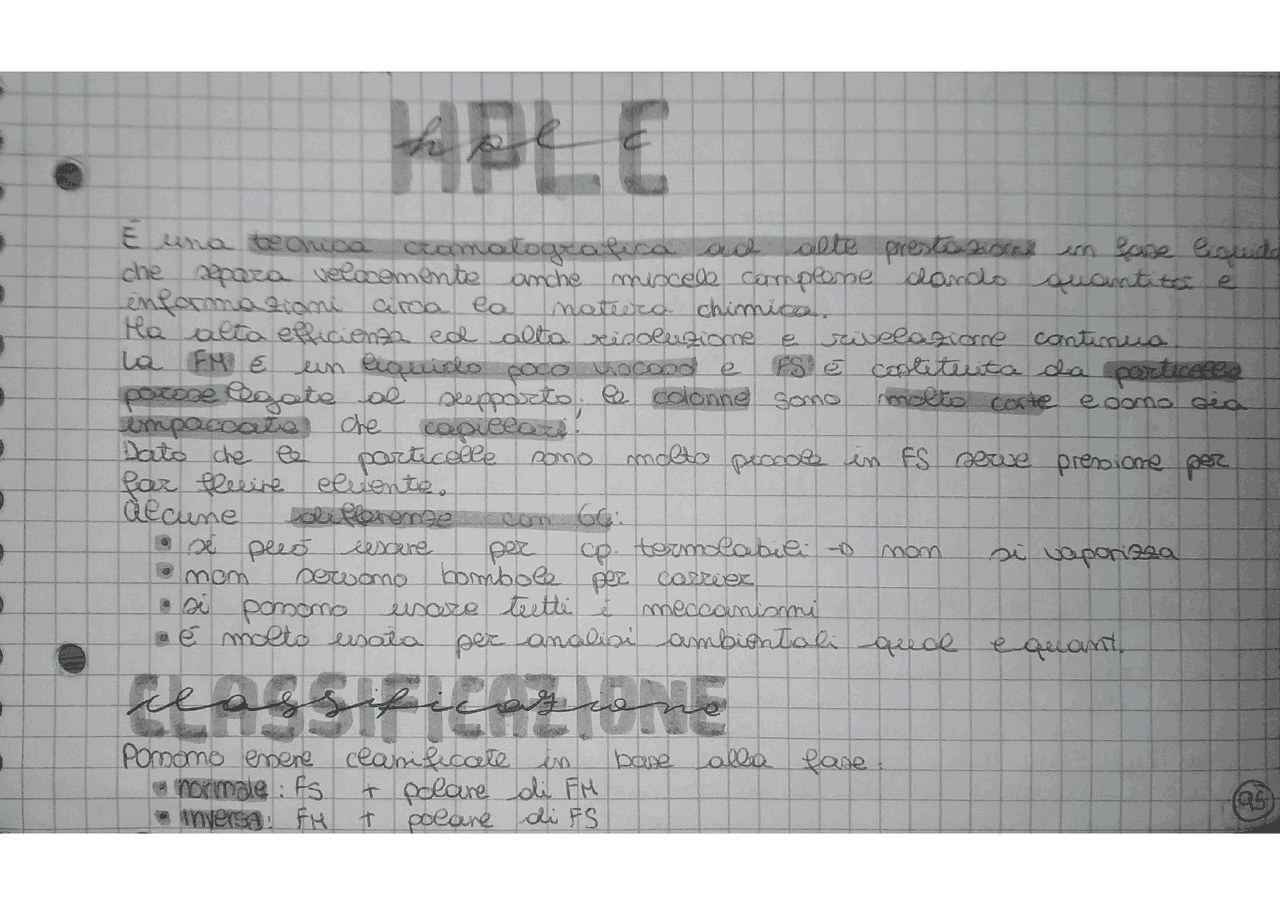 HPLC
hplc
È una tecnica cromatografica ad alte prestazioni in fase liquida
che separa velocemente anche miscele campione dando quantità e
informazioni circa la natura chimica.
Ha alta efficienza ed alta risoluzione e rivelazione continua
La FM è un liquido poco viscoso e FS è costituita da particelle
porose legate al supporto. le colonne sono molto corte e sono sia
impaccate che capillari!
Dato che le particelle sono molto piccole in FS serve pressione per
far fluire eluente.
Alcune differenze con GC:
• si può usare per cp. termolabili → non si vaporizza
• non servono bombole per carrier
• si possono usare tutti i meccanismi
• è molto usata per analisi ambientali qual e quant.
CLASSIFICAZIONE
classificazione
Possono essere classificate in base alla fase:
• normale: FS + polare di FM
• inversa: FM + polare di FS
95